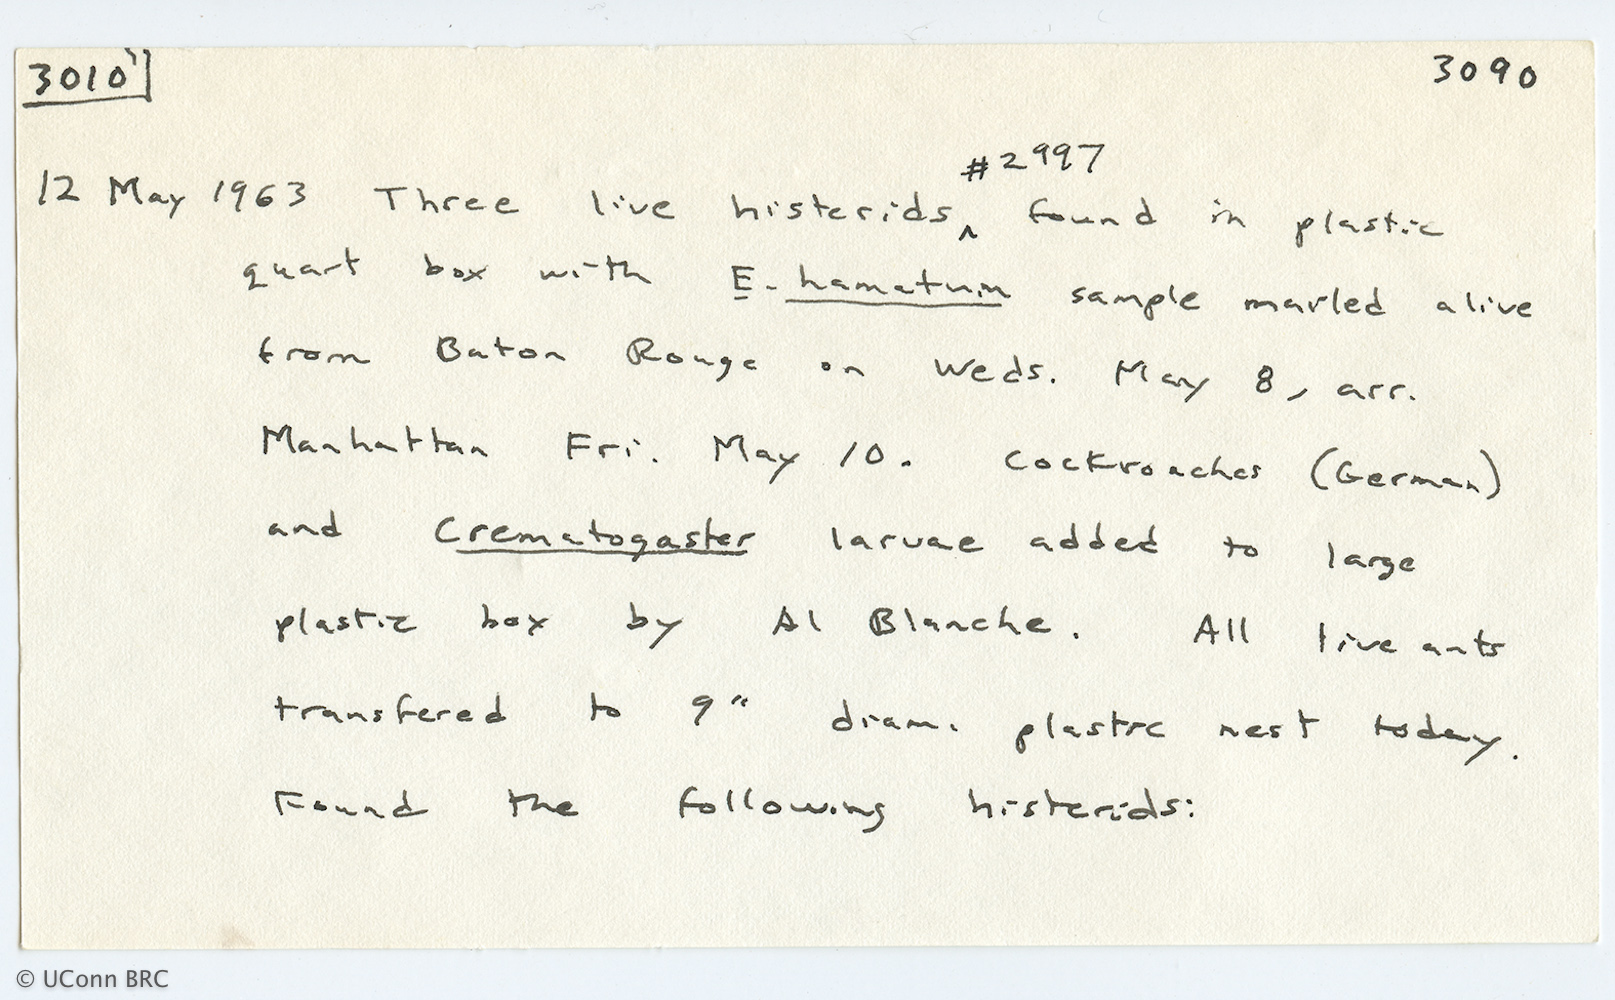 3010
3090
#2997
12 May 1963 Three live histerids ^ found in plastic
quart box with E. hamatum sample mailed alive
from Baton Rouge on Weds. May 8, arr.
Manhattan Fri. May 10. Cockroaches (German)
and Crematogaster larvae added to large
plastic box by Al Blanche. All live ants
transfered to 9" diam. plastic nest today.
Found the following histerids:
© UConn BRC